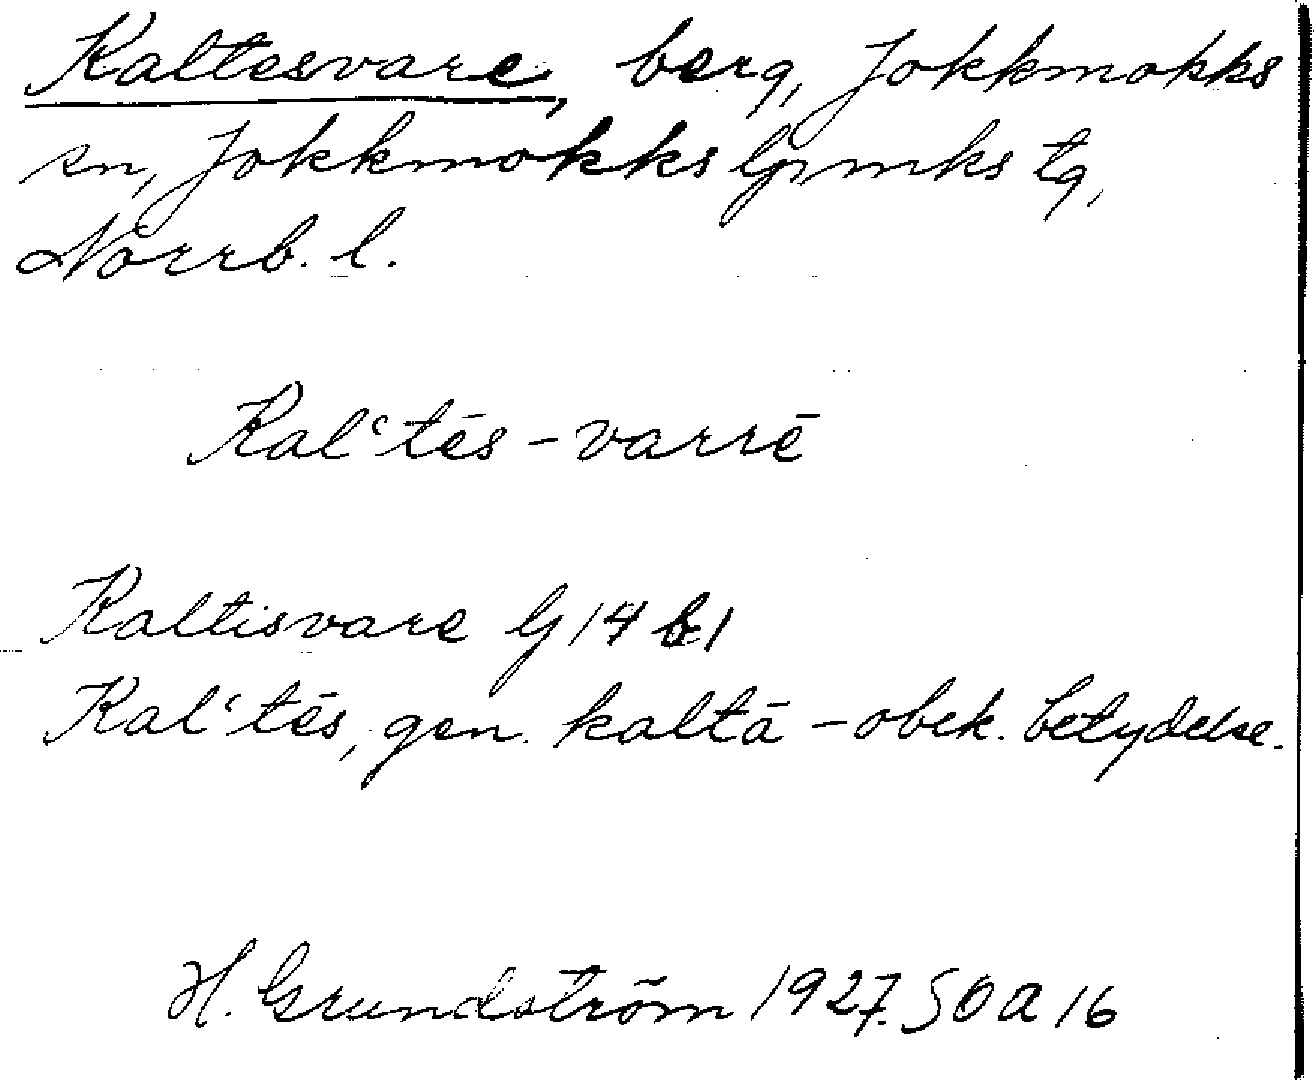 Kaltesvare, berg, Jokkmokks
sn, Jokkmokks lpmks tg,
Norrb. l.
Kalʿtēs-varrē
Kaltisvare G 14 b1
Kalʿtēs, gen. kaltā - obek. betydelse.
H. Grundström 1927. SOA 16